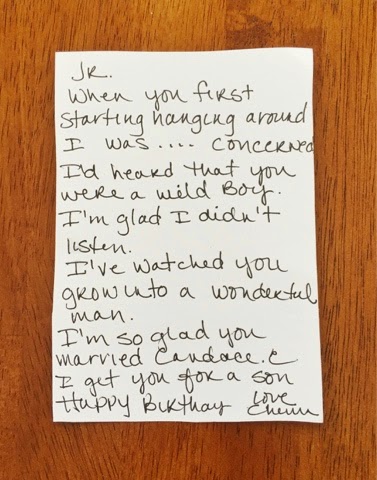 JR.
When you first
starting hanging around
I was.... concerned
I'd heard that you
were a wild Boy.
I'm glad I didn't
listen.
I've watched you
grow into a wonderful
man.
I'm so glad you
married Candace. &
I get you for a son
Happy Birthay Love